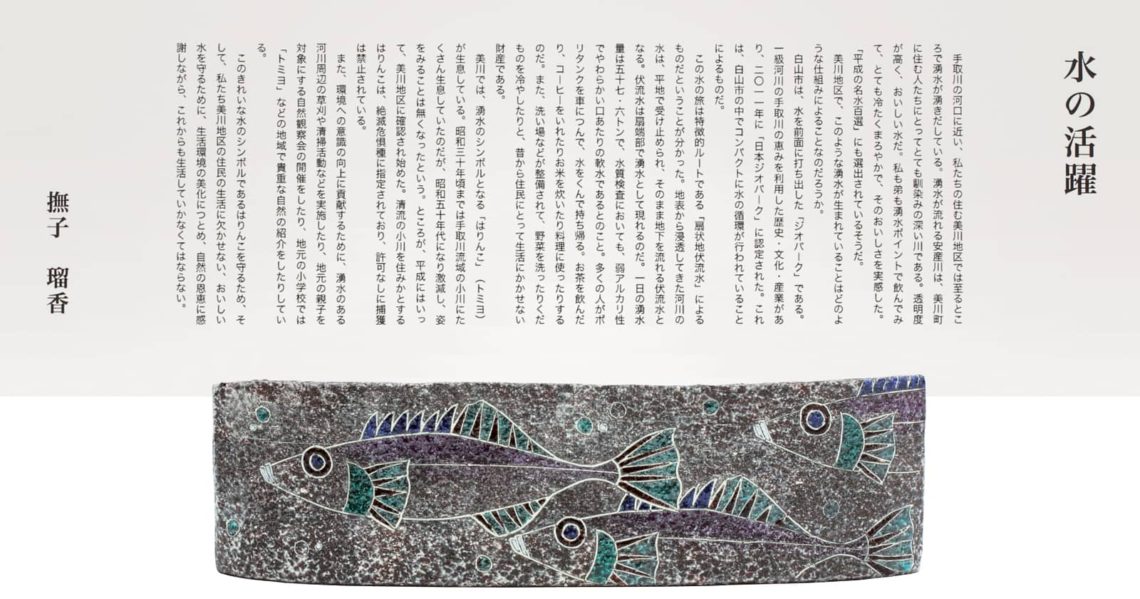 水の活躍
撫子 瑠香
　手取川の河口に近い、私たちの住む美川地区では至るとこ
ろで湧水が湧きだしている。湧水が流れる安産川は、美川町
に住む人たちにとってとても馴染みの深い川である。透明度
が高く、おいしい水だ。私も弟も湧水ポイントで飲んでみ
て、とても冷たくまろやかで、そのおいしさを実感した。
「平成の名水百選」にも選出されているそうだ。
　美川地区で、このような湧水が生まれていることはどのよ
うな仕組みによることなのだろうか。
　白山市は、水を前面に打ち出した「ジオパーク」である。
一級河川の手取川の恵みを利用した歴史・文化・産業があ
り、二〇一一年に「日本ジオパーク」に認定された。これ
は、白山市の中でコンパクトに水の循環が行われていること
によるものだ。
　この水の旅は特徴的ルートである「扇状地伏流水」による
ものだということが分かった。地表から浸透してきた河川の
水は、平地で受け止められ、そのまま地下を流れる伏流水と
なる。伏流水は扇端部で湧水として現れるのだ。一日の湧水
量は五十七・六トンで、水質検査においても、弱アルカリ性
でやわらかい口あたりの軟水であるとのこと。多くの人がポ
リタンクを車につんで、水をくんで持ち帰る。お茶を飲んだ
り、コーヒーをいれたりお米を炊いたり料理に使ったりする
のだ。また、洗い場などが整備されて、野菜を洗ったりくだ
ものを冷やしたりと、昔から住民にとって生活にかかせない
財産である。
　美川では、湧水のシンボルとなる「はりんこ」（トミヨ）
が生息している。昭和三十年頃までは手取川流域の小川にた
くさん生息していたのだが、昭和五十年代になり激減し、姿
をみることは無くなったという。ところが、平成にはいっ
て、美川地区に確認され始めた。清流の小川を住みかとする
はりんこは、絶滅危惧種に指定されており、許可なしに捕獲
は禁止されている。
　また、環境への意識の向上に貢献するために、湧水のある
河川周辺の草刈や清掃活動などを実施したり、地元の親子を
対象にする自然観察会の開催をしたり、地元の小学校では
「トミヨ」などの地域で貴重な自然の紹介をしたりしてい
る。
　このきれいな水のシンボルであるはりんこを守るため、そ
して、私たち美川地区の住民の生活に欠かせない、おいしい
水を守るために、生活環境の美化につとめ、自然の恩恵に感
謝しながら、これからも生活していかなくてはならない。